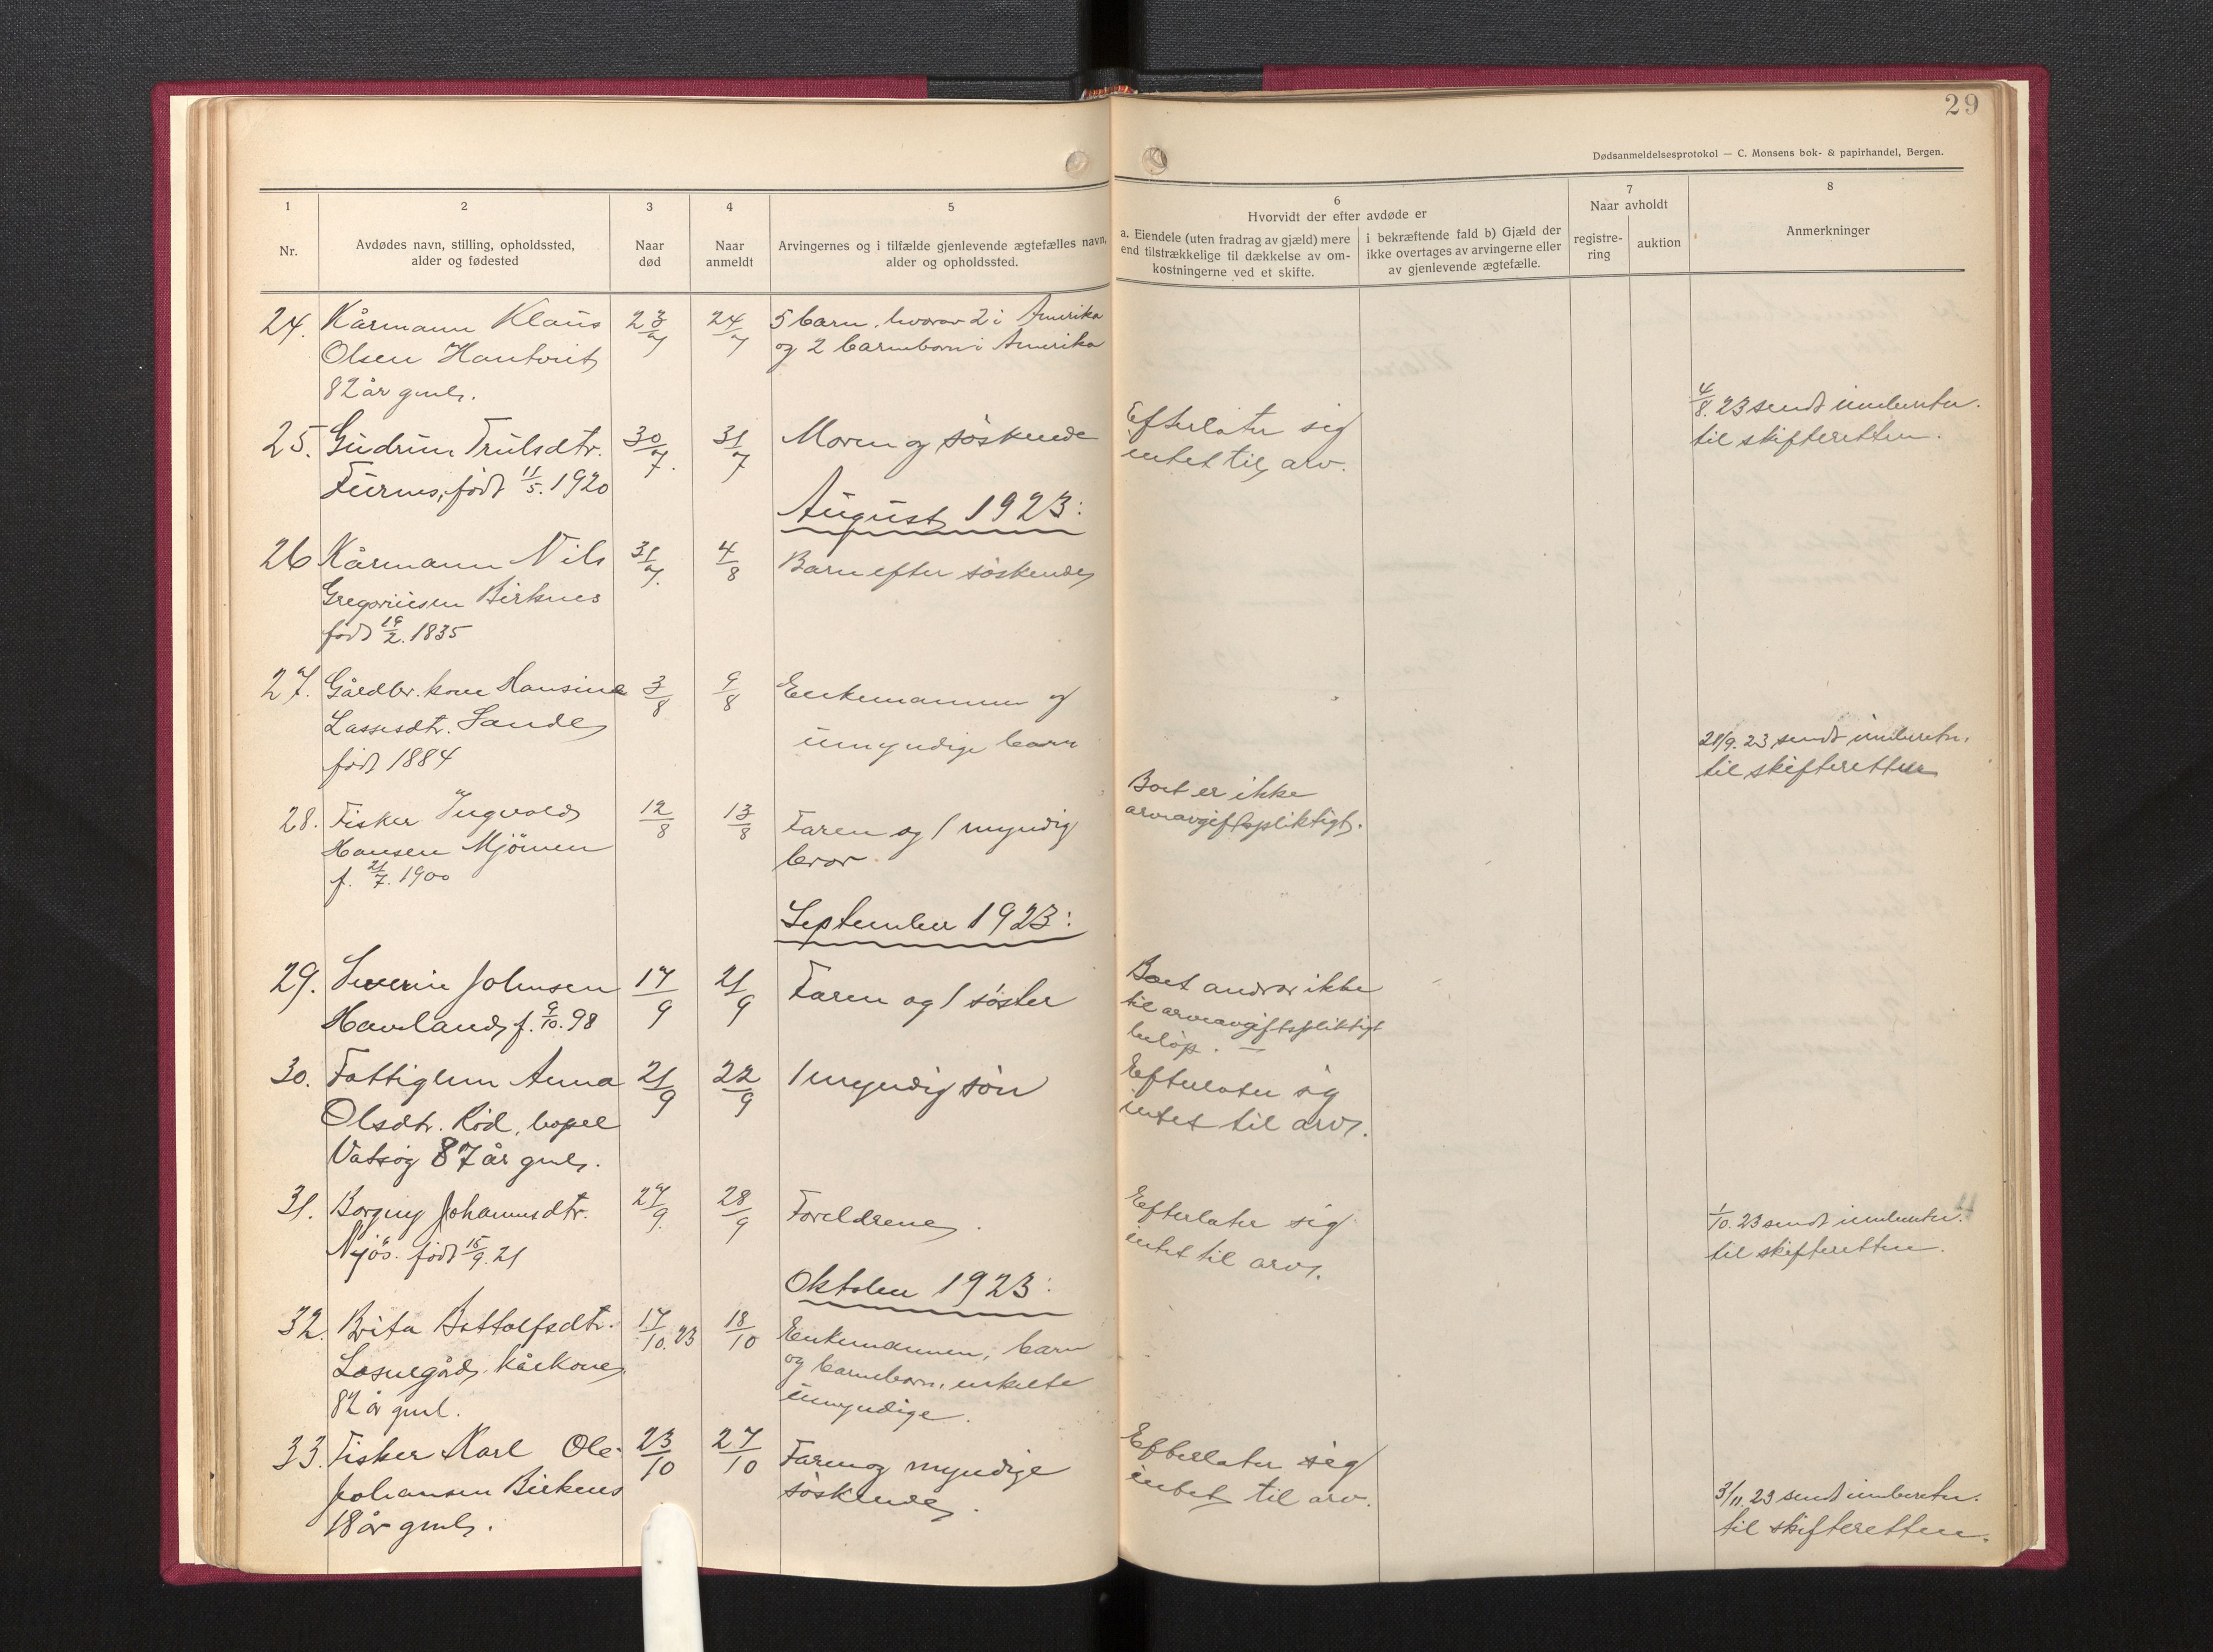 29
Dødsanmeldelsesprotokol — C. Monsens bok- & papirhandel, Bergen.
1
2
3
4
5
6
7
8
Nr.
Avdødes navn, stilling, opholdssted,
alder og fødested
Naar
død
Naar
anmeldt
Arvingernes og i tilfælde gjenlevende ægtefælles navn,
alder og opholdssted.
Hvorvidt der efter avdøde er
a. Eiendele (uten fradrag av gjæld) mere
end tilstrækkelige til dækkelse av om-
kostningerne ved et skifte.
i bekræftende fald b) Gjæld der
ikke overtages av arvingerne eller
av gjenlevende ægtefælle.
Naar avholdt
registre-
ring
auktion
Anmerkninger
24. Kårmann Klaus 23/7 24/7 5 barn, hvorav 2 i Amerika
Olsen Hantveit og 2 barnebarn i Amerika
82 år gml.
4/8. 23 sendt innberetn.
til skifteretten.
25. Gudrun Trulsdtr. 30/7. 31/7 Moren og søskende Efterlater sig
Furnes, født 11/5. 1920 intet til arv.
August 1923:
26 Kårmann Nils 31/7. 4/8 Barn efter søskende
Gregoriusen Birknes
født 19/2. 1835
27. Gårdbr. kone Hansine 3/8 9/8 Enkemannen og
Lassesdtr. Sande umyndige barn
født 1884
21/9. 23 sendt innberetn.
til skifteretten
28. Fisker Ingvald 12/8 13/8 Faren og 1 myndig Boet er ikke
Hansen Mjömen bror. arveavgiftspliktigt.
f. 21/7. 1900
September 1923:
29. Severin Johnsen 17/9 21/9 Faren og 1 søster Boet andrar ikke
Haveland f. 9/10. 98 til arveavgiftspliktigt
beløp. —
30. Fattiglem Anna 21/9 22/9 1 myndig søn Efterlater sig
Olsdtr. Röd, bopel intet til arv.
Vatsøy 87 år gml.
31. Borgny Johannesdtr. 27/9. 28/9 Foreldrene. Efterlater sig
Njøs. født 15/9. 21 intet til arv.
1/10. 23 sendt innberetn.
til skifteretten.
Oktober 1923:
32. Brita Bottolfsdtr. 17/10. 23 18/10 Enkemannen, barn
Losnegård, kårkone og barnebarn, enkelte
82 år gml. umyndige.
33. Fisker Karl Ole 23/10 27/10 Faren og myndige Efterlater sig
Johansen Birknes søskende. intet til arv.
18 år gml.
3/11. 23 sendt innberetn.
til skifteretten.